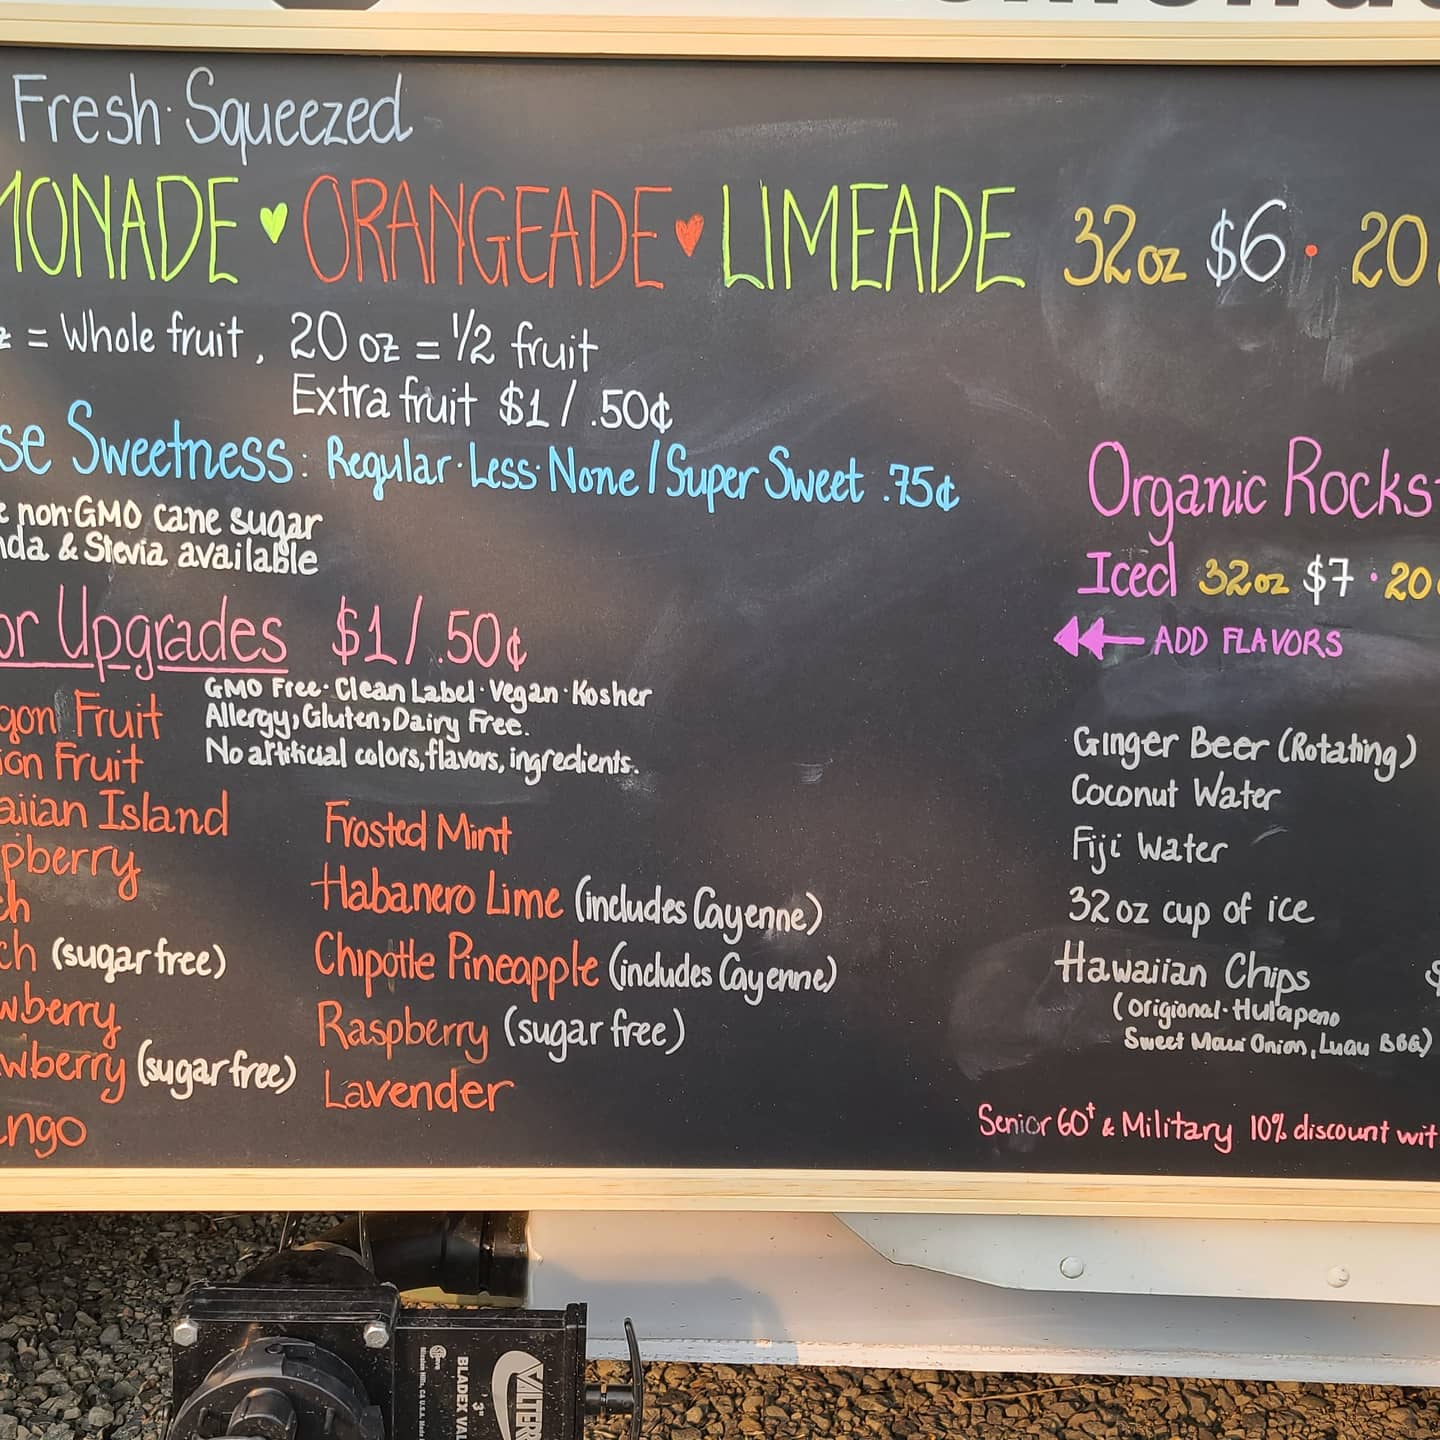 Fresh Squeezed
MONADE ORANGEADE LIMEADE 32oz $6 • 20
= Whole fruit, 20 oz = 1/2 fruit
Extra fruit $1 / .50¢
se Sweetness: Regular · Less · None / Super Sweet .75¢
non·GMO cane sugar
nda & Stevia available
or Upgrades $1/.50¢
GMO Free · Clean Label · Vegan · Kosher
Allergy, Gluten, Dairy Free.
No artificial colors, flavors, ingredients.
gon Fruit
ion Fruit
aiian Island
pberry
ch
ch (sugar free)
wberry
wberry (sugar free)
ngo
Frosted Mint
Habanero Lime (includes Cayenne)
Chipotle Pineapple (includes Cayenne)
Raspberry (sugar free)
Lavender
Organic Rocks
Iced 32oz $7 • 20
ADD FLAVORS
Ginger Beer (Rotating)
Coconut Water
Fiji Water
32 oz cup of ice
Hawaiian Chips $
(Origional · Hulapeno
Sweet Maui Onion, Luau BBQ)
Senior 60+ & Military 10% discount wit
VALTER
3"
BLADEX VAL